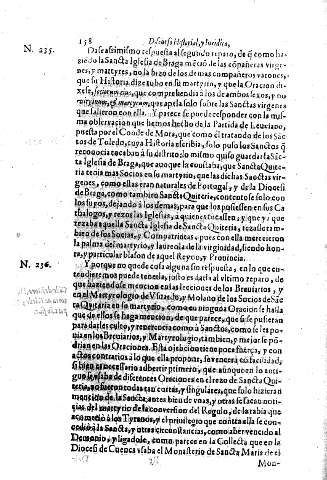 158 Discurso Historial, y Juridico,
N. 235. Dase assimismo respuesta al segundo reparo, de q̃ como ha-
ziẽdo la Sancta Iglesia de Braga mẽciõ de las cõpañeras virgẽ-
nes, y martyres, no la hizo de los demas compañeros varones,
que su Historia dize auho en su martyrio, y que la Oracion di-
xesse, y no
virginum, & martyrum, que apela solo sobre las Sanctas virgines
que salieron con ella. Y parece se puede responder con la mis-
ma obseruacion que hemos hecho de la Partida de Leuciano,
puesta por el Conde de Mora, que como èl tratando de los Sãc-
tos de Toledo, cuya Historia escribia, solo puso los Sanctos q̃
reconocia tocaban à su distrito; lo mismo quiso guardar la Sãc-
ta Iglesia de Braga, que aunque le constaba, que Sancta Quite-
ria tenia mas Socios en su martyrio, que las dichas Sanctas vir-
genes, como ellas eran naturales de Portugal, y de la Diocesi
de Braga, como tambien Sancta Quiteria, contentose solo con
los suyos, dejando à los demas, para que los pusiessen en sus Ca-
thalogos, y rezos las Iglesias, à quienes tocassen; y que ya que
rezaba aquella Sancta Iglesia de Sancta Quiteria, rezasse tam-
bien de sus Socias, y Compatriotas, pues con ella merecieron
la palma del martyrio, y laureola de la virginidad, siendo honra,
y particular blason de aquel Reyno, y Prouincia.
N. 236. Y porque no quede cosa alguna sin respuesta, en lo que en-
tendieremos puede tenerla, justo es darla al vltimo reparo, de
que haziendose mencion en las lecciones de los Breuiarios, y
en el Martyrologio de Vsuardo, y Molano de los Socios de Sãc-
ta Quiteria en su martyrio, como en ninguna Oracion se haga
que de ellos se haga mencion; de que parece, que si se pusieran
para darles culto, y reuerencia como à Sanctos, como se les po-
nia en los Breuiarios, y Martyrologio, tambien, y mejor se põ-
drian en las Oraciones. Esta objecion tiene poca fuerça, y con
actos contrarios à lo que ella propone, se vencerà con facilidad,
si bien es necessario aduertir primero, que aunque en lo anti-
guo se vsaba de diferentes Oraciones en el rezo de Sancta Qui-
teria, no eran todas tan cortas, y singulares, que solo hizieran
mencion de la Sancta, antes bien de vnas, y otras se sacan noti-
cias del martyrio de la conuersion del Regulo, de la rabia que
acometiò à los Tyranos, y el privilegio que contra ella se con-
cediò à la Sancta, y otras circunstancias, como aber vencido al
Demonio, y ligadole, como parece en la Collecta que en la
Diocesi de Cuenca vsaba el Monasterio de Sancta Maria de el
Mon-